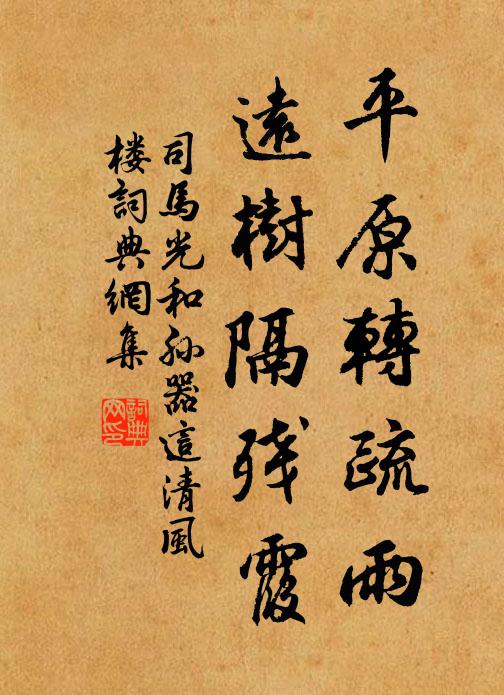 平原轉疏雨
遠樹隔残霞
司馬光和孙器這清風
楼詞典網集
詞典
网印